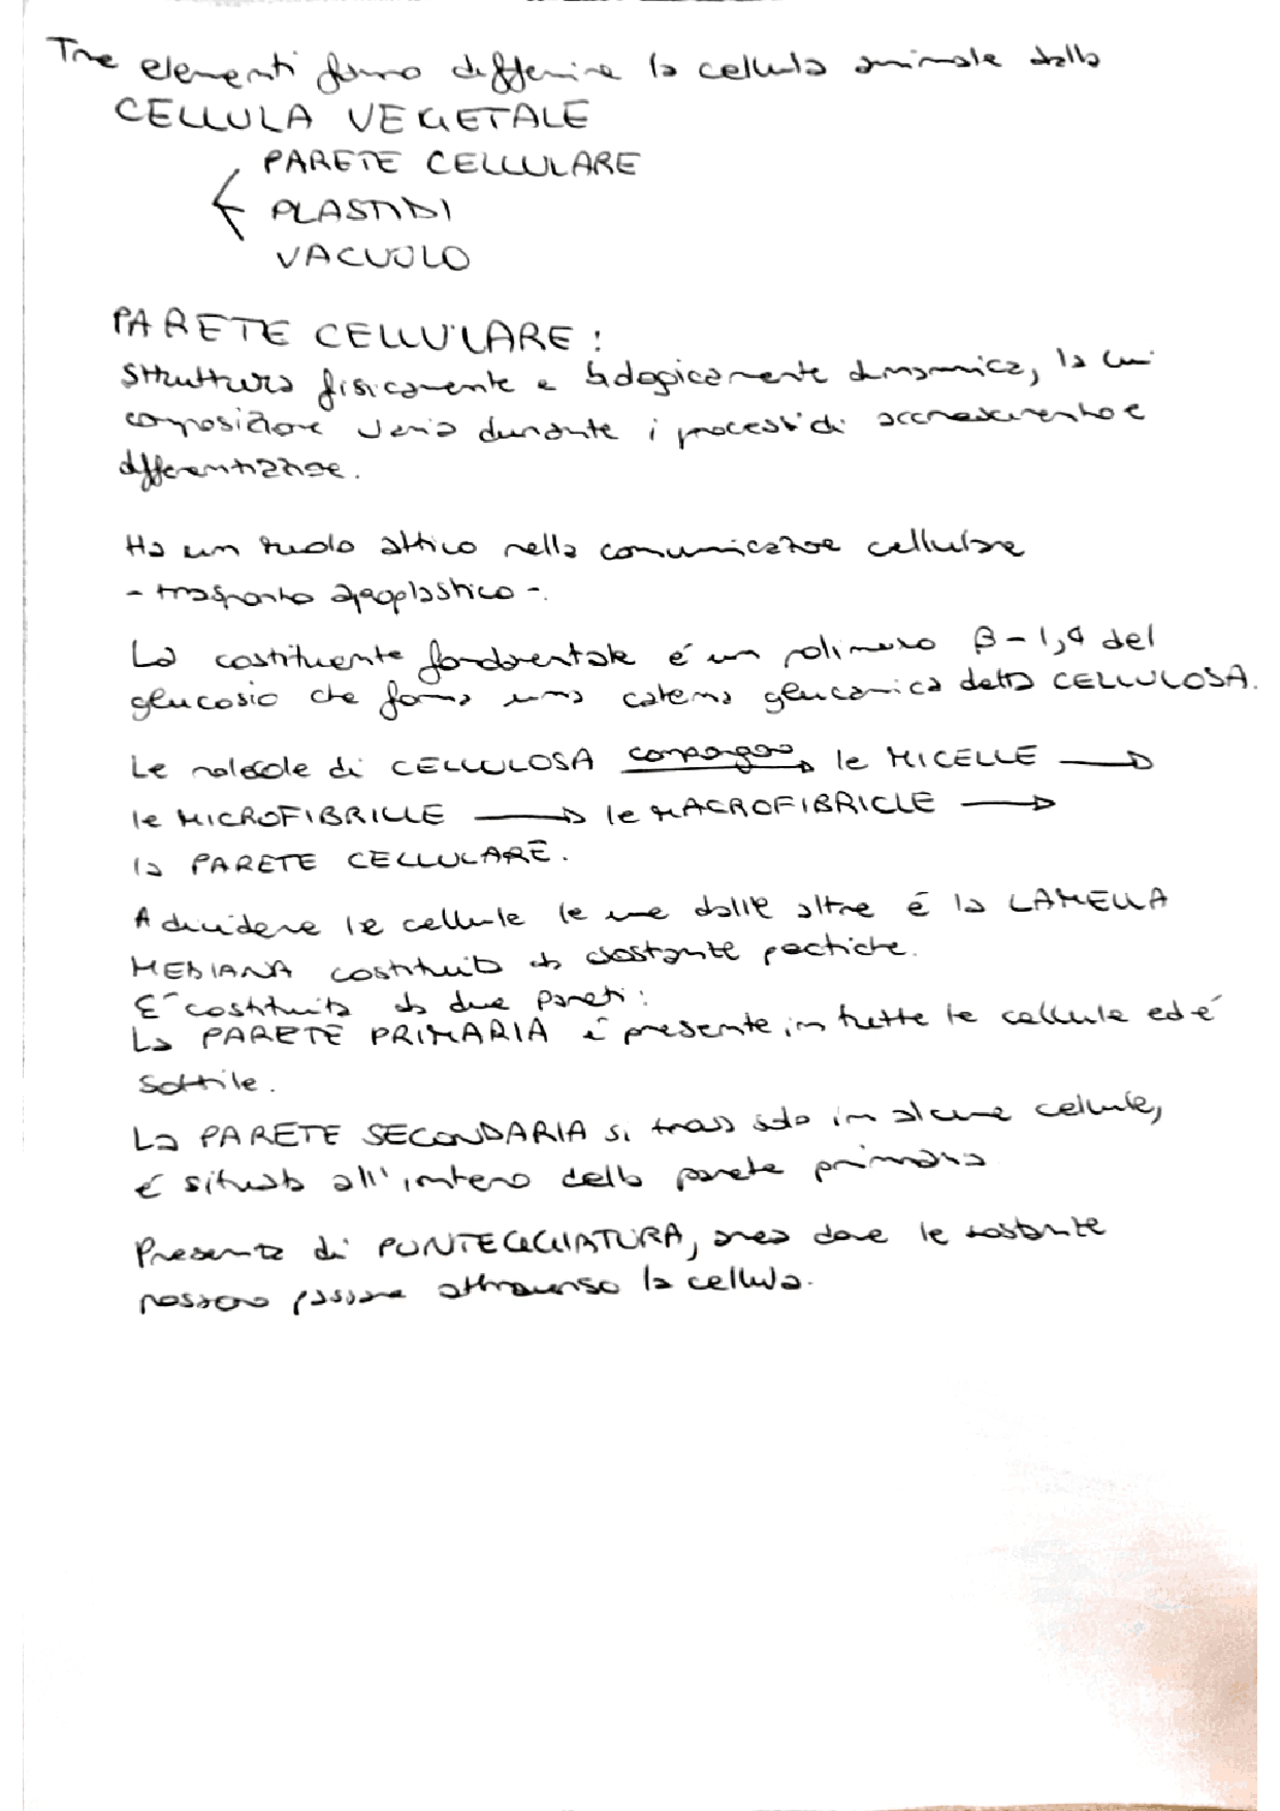 Tre elementi fanno differire la cellula animale dalla
CELLULA VEGETALE
PARETE CELLULARE
PLASTIDI
VACUOLO
PARETE CELLULARE:
struttura fisicamente e biologicamente dinamica, la cui
composizione varia durante i processi di accrescimento e
differentiazione.
Ha un ruolo attivo nella comunicazione cellulare
- trasporto apoplastico -.
La costituente fondamentale é un polimero β-1,4 del
glucosio che forma una catena glucanica detta CELLULOSA.
Le molecole di CELLULOSA compongono le MICELLE →
le MICROFIBRILLE → le MACROFIBRILLE →
la PARETE CELLULARE.
A dividere le cellule le une dalle altre é la LAMELLA
MEDIANA costituita da sostante pectiche.
É costituita da due pareti:
La PARETE PRIMARIA é presente in tutte le cellule ed é
sottile.
La PARETE SECONDARIA si trova solo in alcune cellule,
é situata all'interno della parete primaria
Presenta di PUNTEGGIATURA, area dove le sostante
possono passare attraverso la cellula.